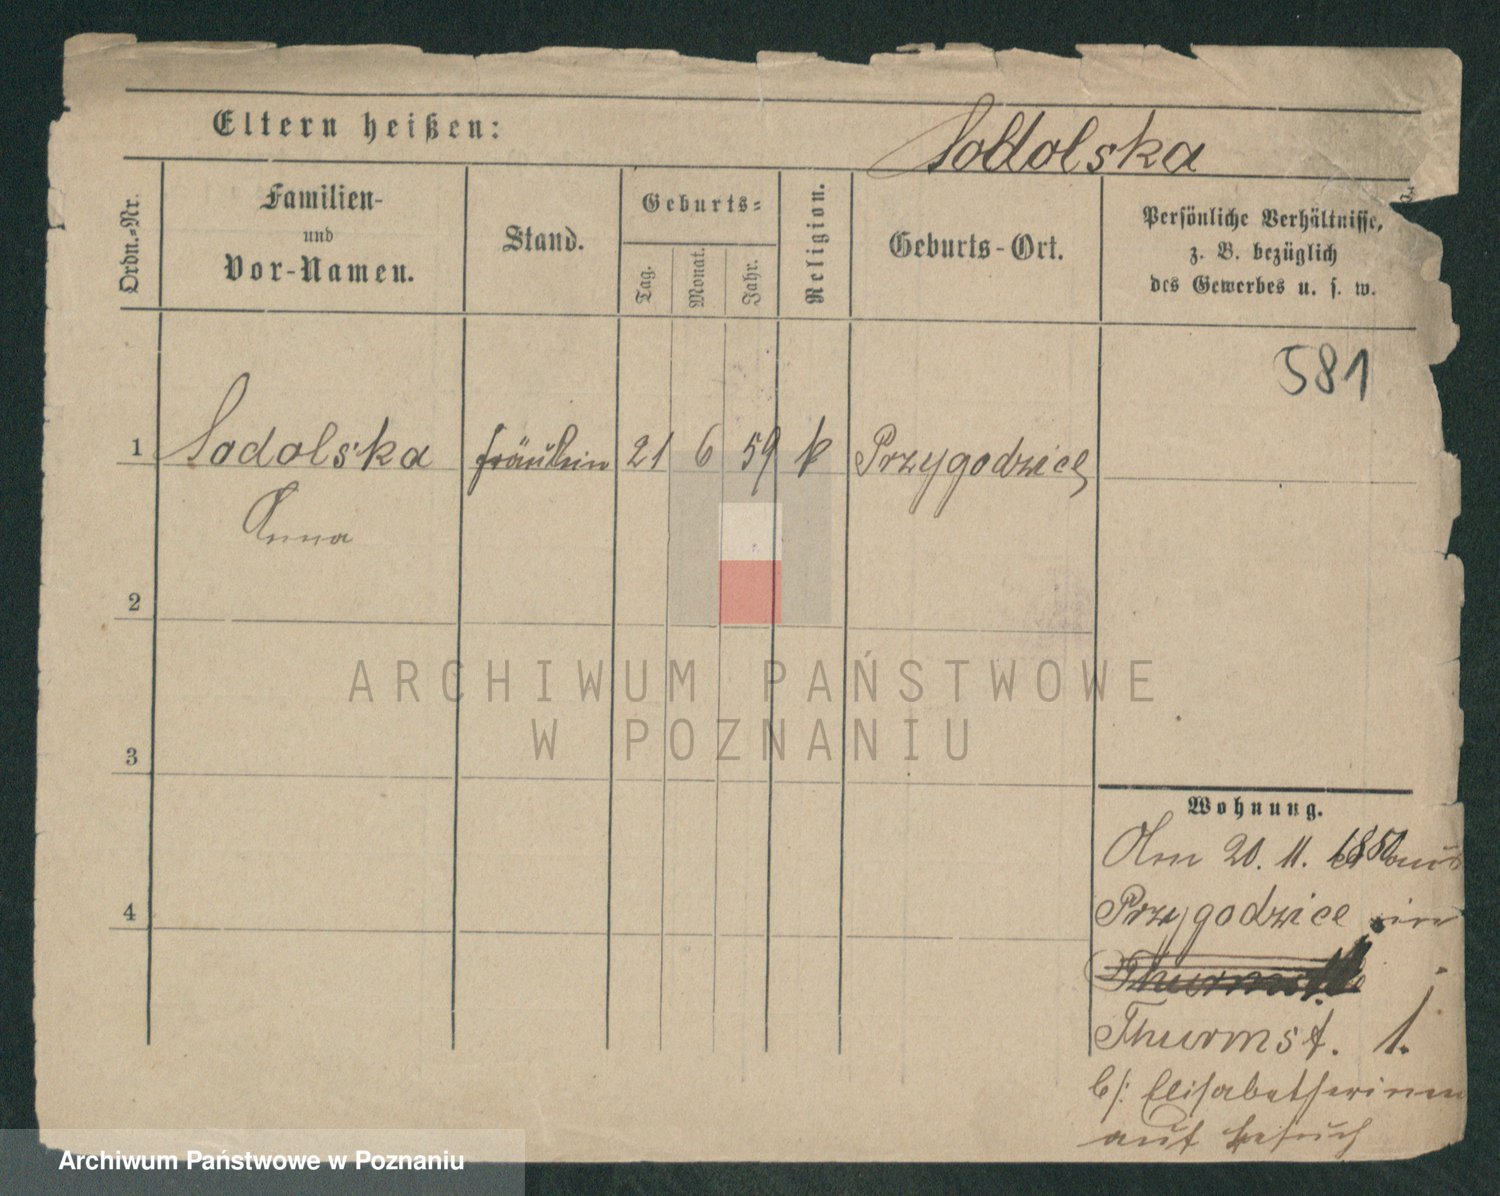 Eltern heißen:
Sodolska
Ordn.-Nr.
Familien-
und
Vor-Namen.
Stand.
Geburts-
Tag.
Monat.
Jahr.
Religion.
Geburts-Ort.
Persönliche Verhältnisse,
z. B. bezüglich
des Gewerbes u. s. w.
581
1 Sodolska fräulein 21 6 59 k Przygodzice
Anna
2
3
4
Wohnung.
Am 20. 11. aus
Przygodzice in
Thurmst. 1.
b/: Elisabetherinnen
auf besuch
ARCHIWUM PAŃSTWOWE
W POZNANIU
Archiwum Państwowe w Poznaniu